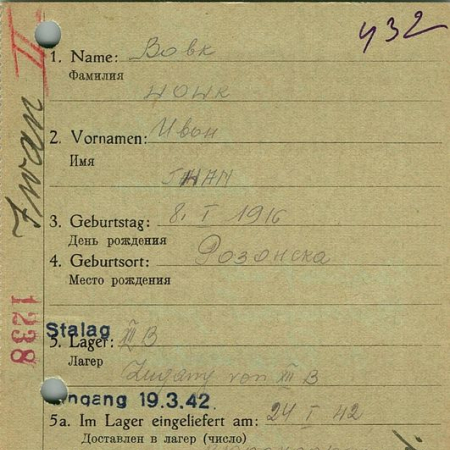 432
II
Iwan
1. Name: Вовк
Фамилия
2. Vornamen: Иван
Имя
3. Geburtstag: 8. I 1916
День рождения
4. Geburtsort: Розонска
Место рождения
1238
Stalag
5. Lager: III B
Лагер
Zugang von III B
ingang 19.3.42.
5a. Im Lager eingeliefert am: 24 I 42
Доставлен в лагер (число)